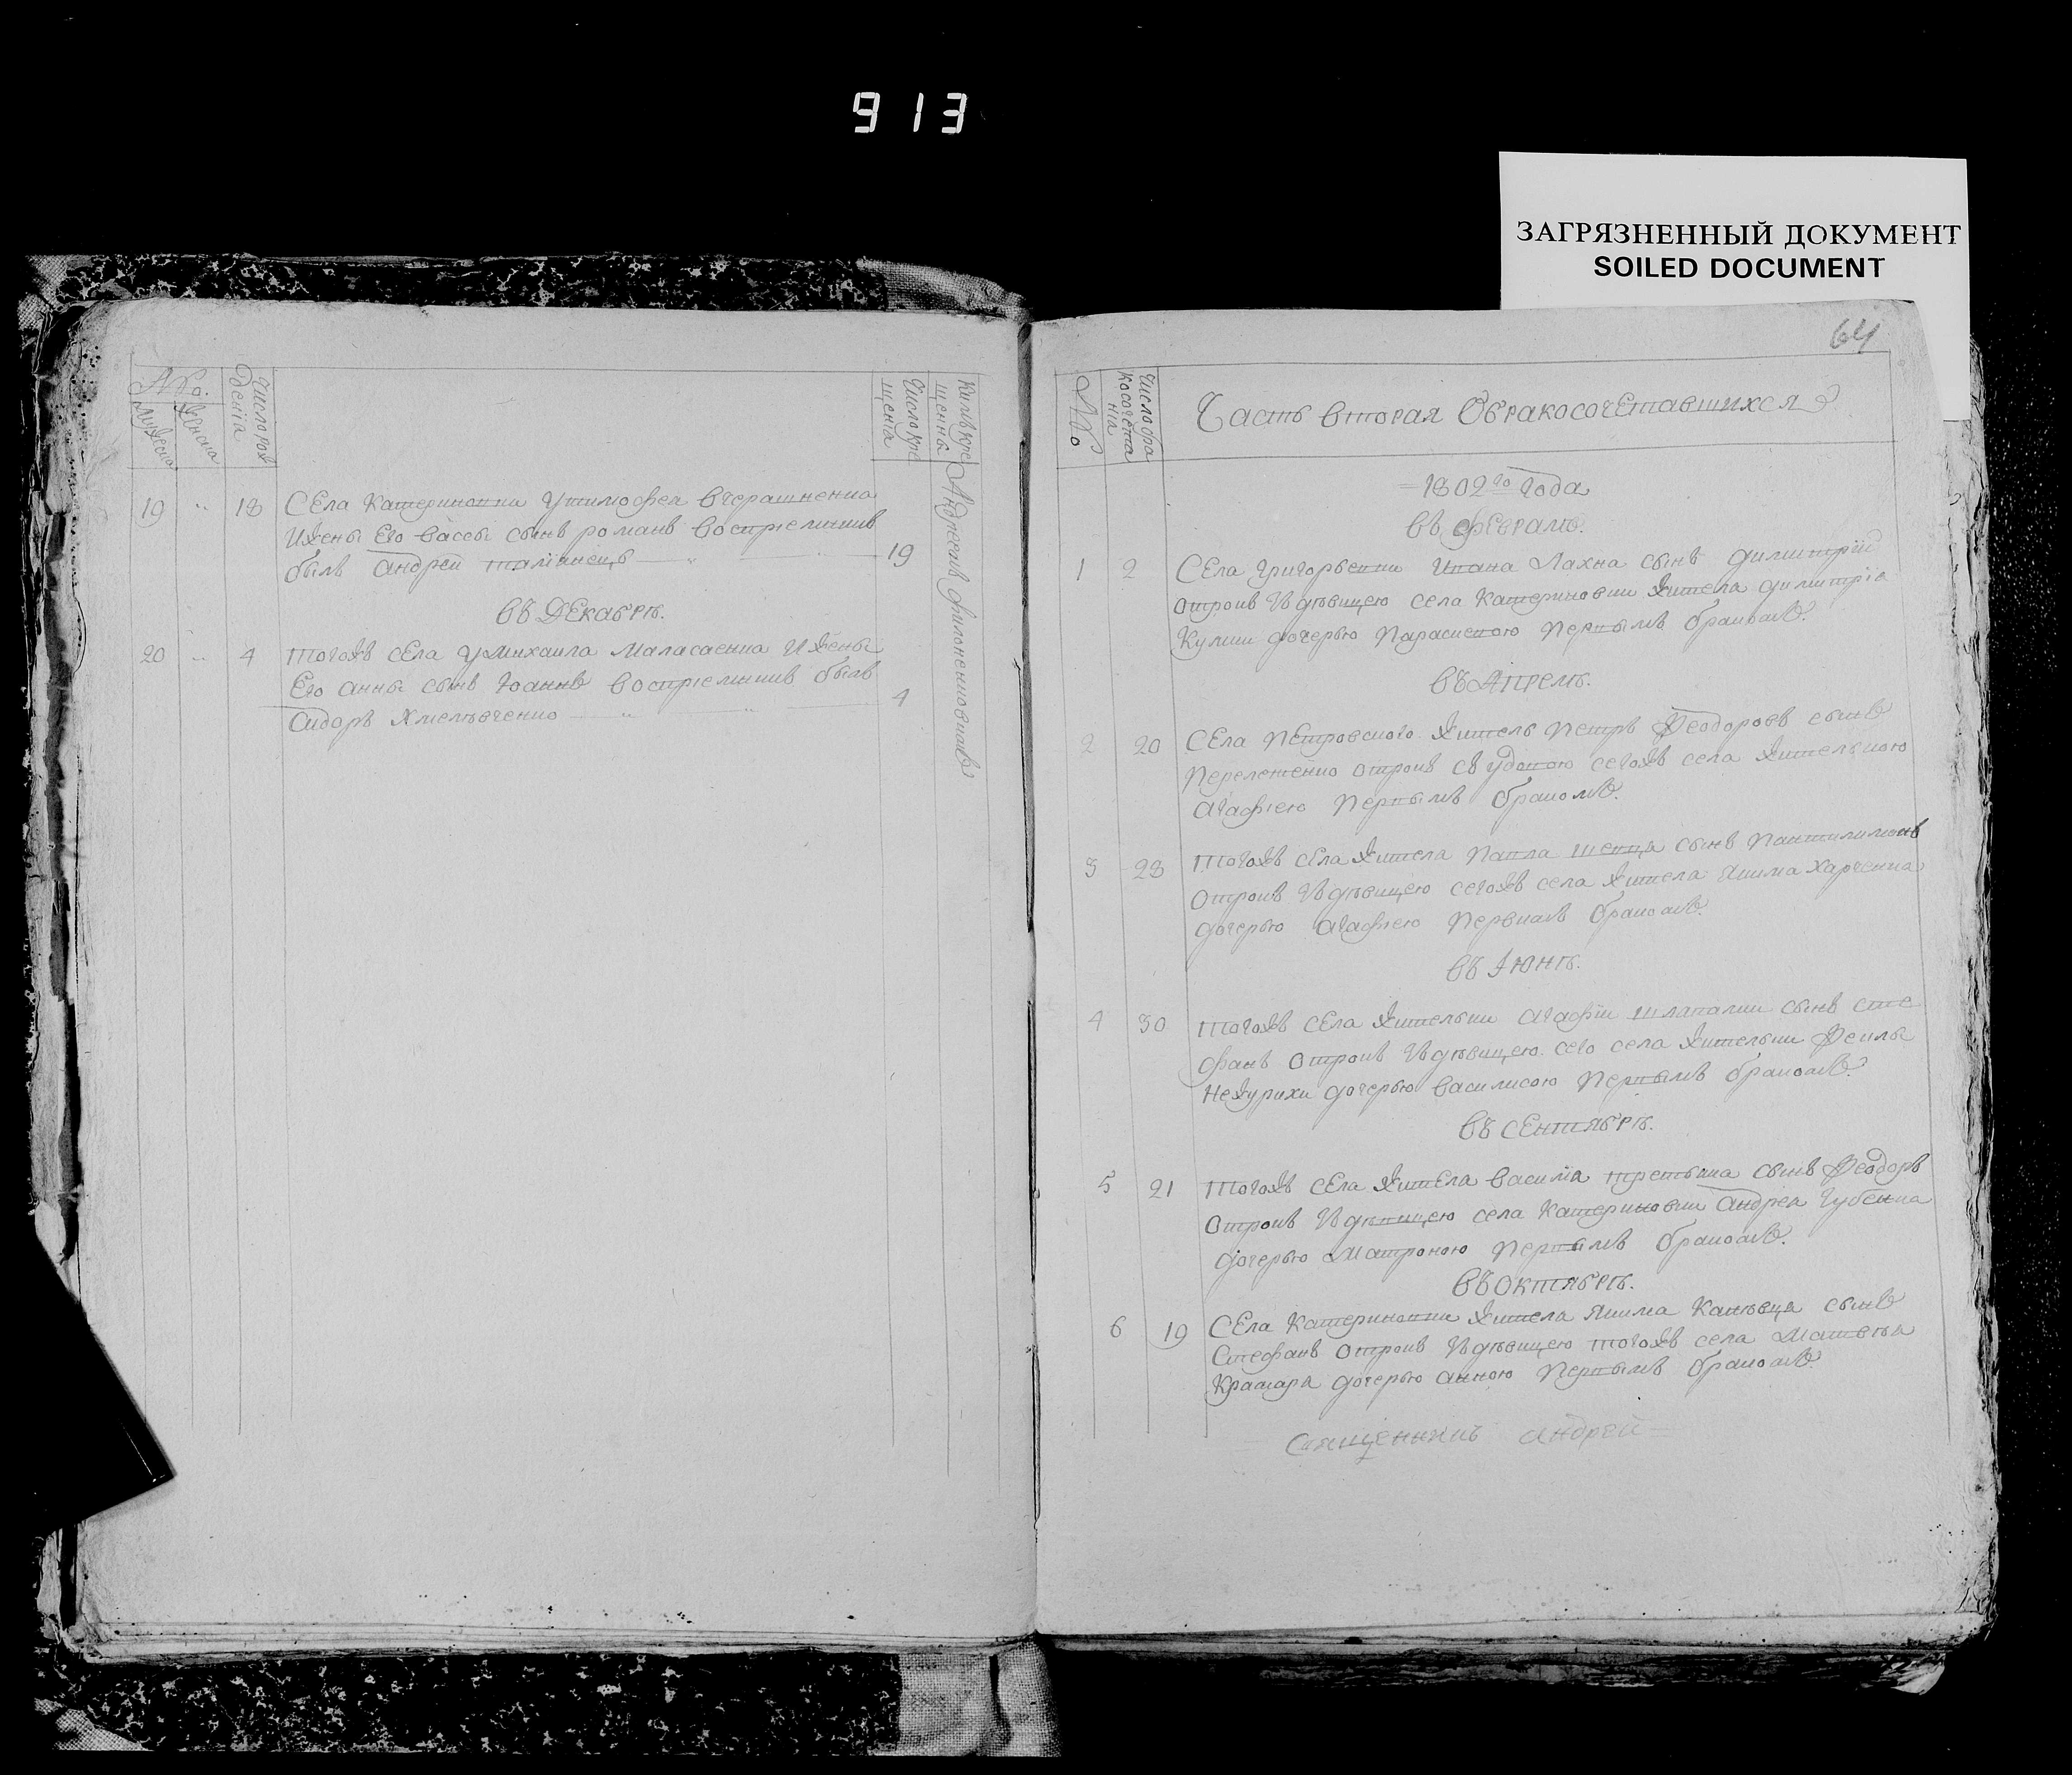 913
ЗАГРЯЗНЕННЫЙ ДОКУМЕНТ
SOILED DOCUMENT
№.
Мужеска
Женска
Число рож
денія
Число кре
щенія
Кимъ кре
щенны
19 " 18 Села Катериновки у тимофея вчерашненка
Ижены Его вассы сынъ романъ воспріемникъ
былъ андрей 19
въ Декабрѣ.
20 " 4 тогожъ села у михаила Маласаенка Ижены
Его анны сынъ Іоаннъ воспріемникъ былъ
сидоръ хмелѣвченко 4
Андреемъ филоненковимъ
64
№
Число бра
косочета
нія
Часть вторая Обракосочетавшихся
1802го года
въ февралѣ.
1 2 Села григорьевки Ивана Лахна сынъ димитрій
отрокъ здѣвицею села Катериновки жителя димитрія
Кулики дочерью Параскевою Первымъ бракомъ.
въ Апрелѣ.
2 20 Села Петровского житель Петръ Феодоровъ сынъ
отрокъ съ удовою сегожъ села жителькою
агафіею Первымъ бракомъ.
3 28 тогожъ села жителя Павла шевца сынъ Пантилимонъ
отрокъ здѣвицею сегожъ села жителя якима Харченка
дочерью агафіею Первимъ бракомъ.
въ Іюнѣ.
4 30 тогожъ села жительки агафіи шлапачки сынъ сте
фанъ отрокъ здѣвицею сего села жительки Феклы
Нежурихи дочерью василисою Первымъ бракомъ.
въ Сентябрѣ.
5 21 тогожъ села жителя василія третяка сынъ Феодоръ
отрокъ здѣвицею села Катериновки андрея губенка
дочерью Матроною Первымъ бракомъ.
въ Октябрѣ.
6 19 Села Катериновки жителя якима Канѣвца сынъ
Стефанъ отрокъ здѣвицею тогожъ села Матвѣя
Крамара дочерью анною Первымъ бракомъ.
Священникъ андрей